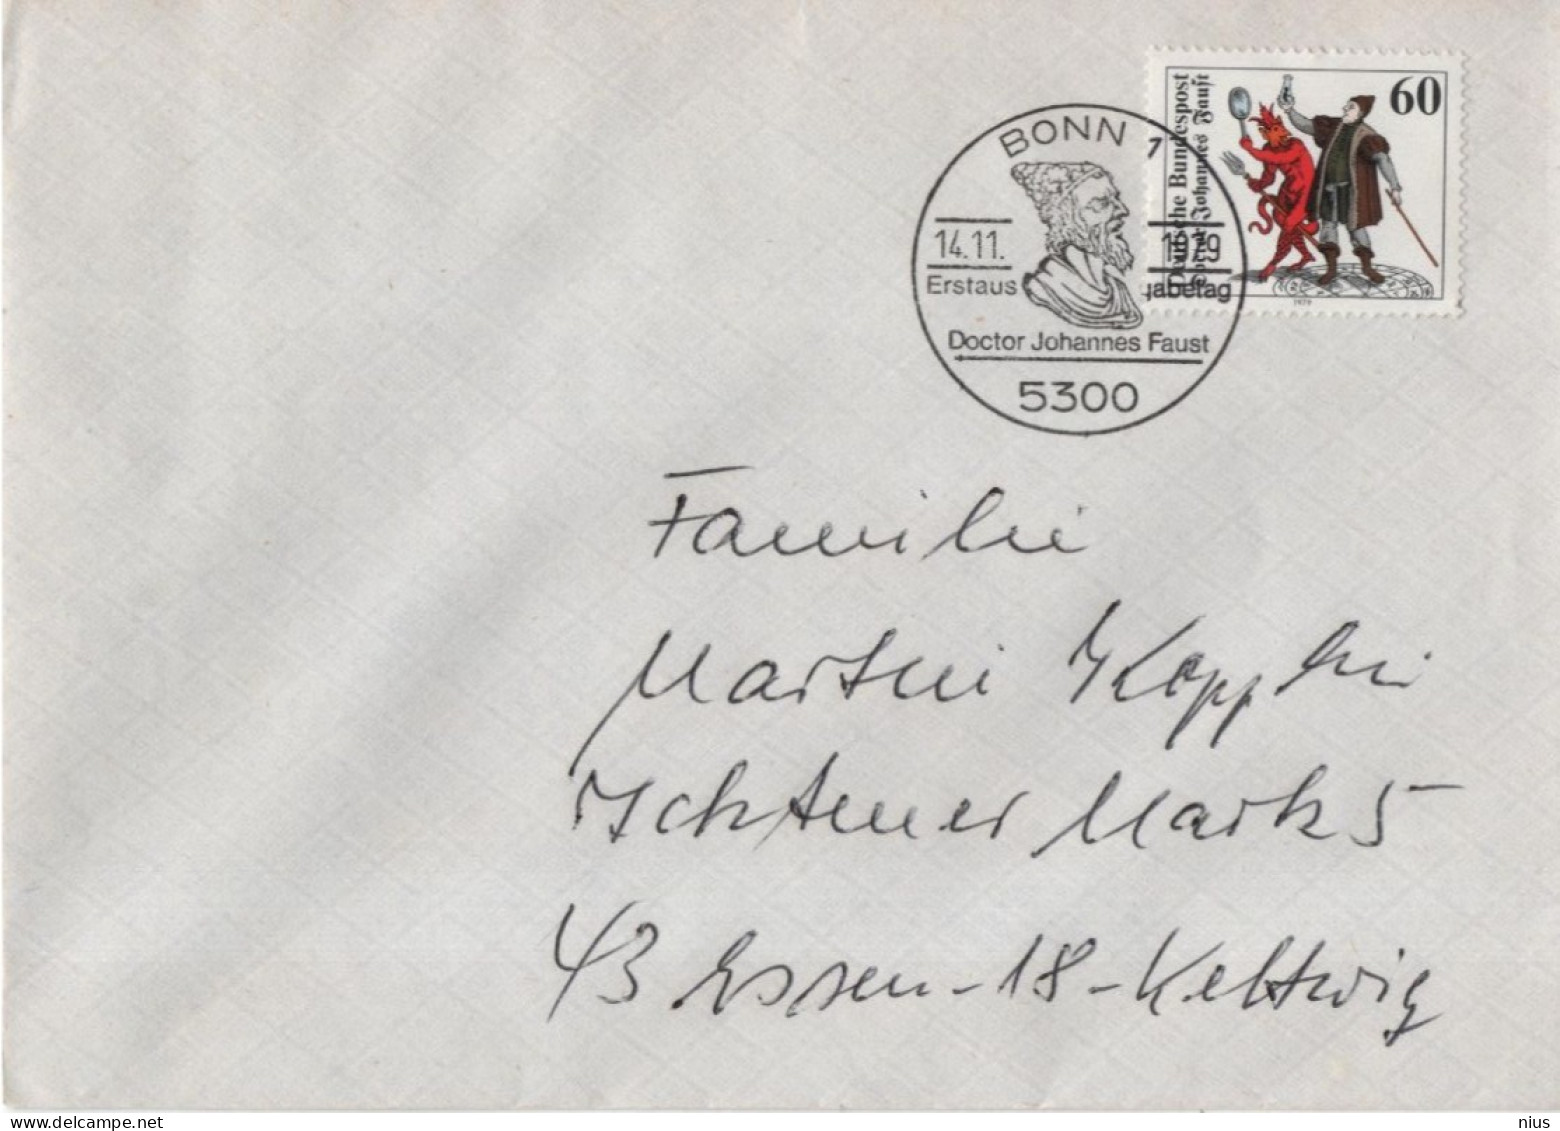 BONN 1
14.11. 1979
Erstausgabetag
Doctor Johannes Faust
5300
Deutsche Bundespost
Doctor Johannes Faust
60
1979
Familie
Martin Kopplin
Icktener Mark 5
43 Essen-18-Kettwig
nius